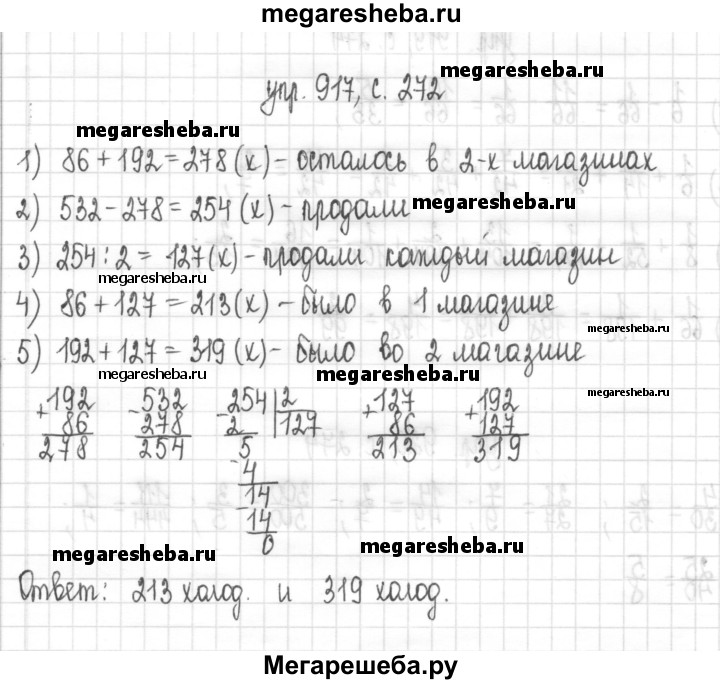 megaresheba.ru
упр. 917, с. 272 megaresheba.ru
megaresheba.ru
1) 86 + 192 = 278 (х) - осталось в 2-х магазинах
2) 532 - 278 = 254 (х) - продали megaresheba.ru
3) 254 : 2 = 127 (х) - продали каждый магазин
megaresheba.ru
4) 86 + 127 = 213 (х) - было в 1 магазине
megaresheba.ru
5) 192 + 127 = 319 (х) - было во 2 магазине
megaresheba.ru megaresheba.ru
megaresheba.ru
+192 -532 -254|2 +127 +192
86 278 2 127 86 127
278 254 5 213 319
-4
-14
14
0
megaresheba.ru megaresheba.ru
Ответ: 213 холод. и 319 холод.
Мегарешеба.ру